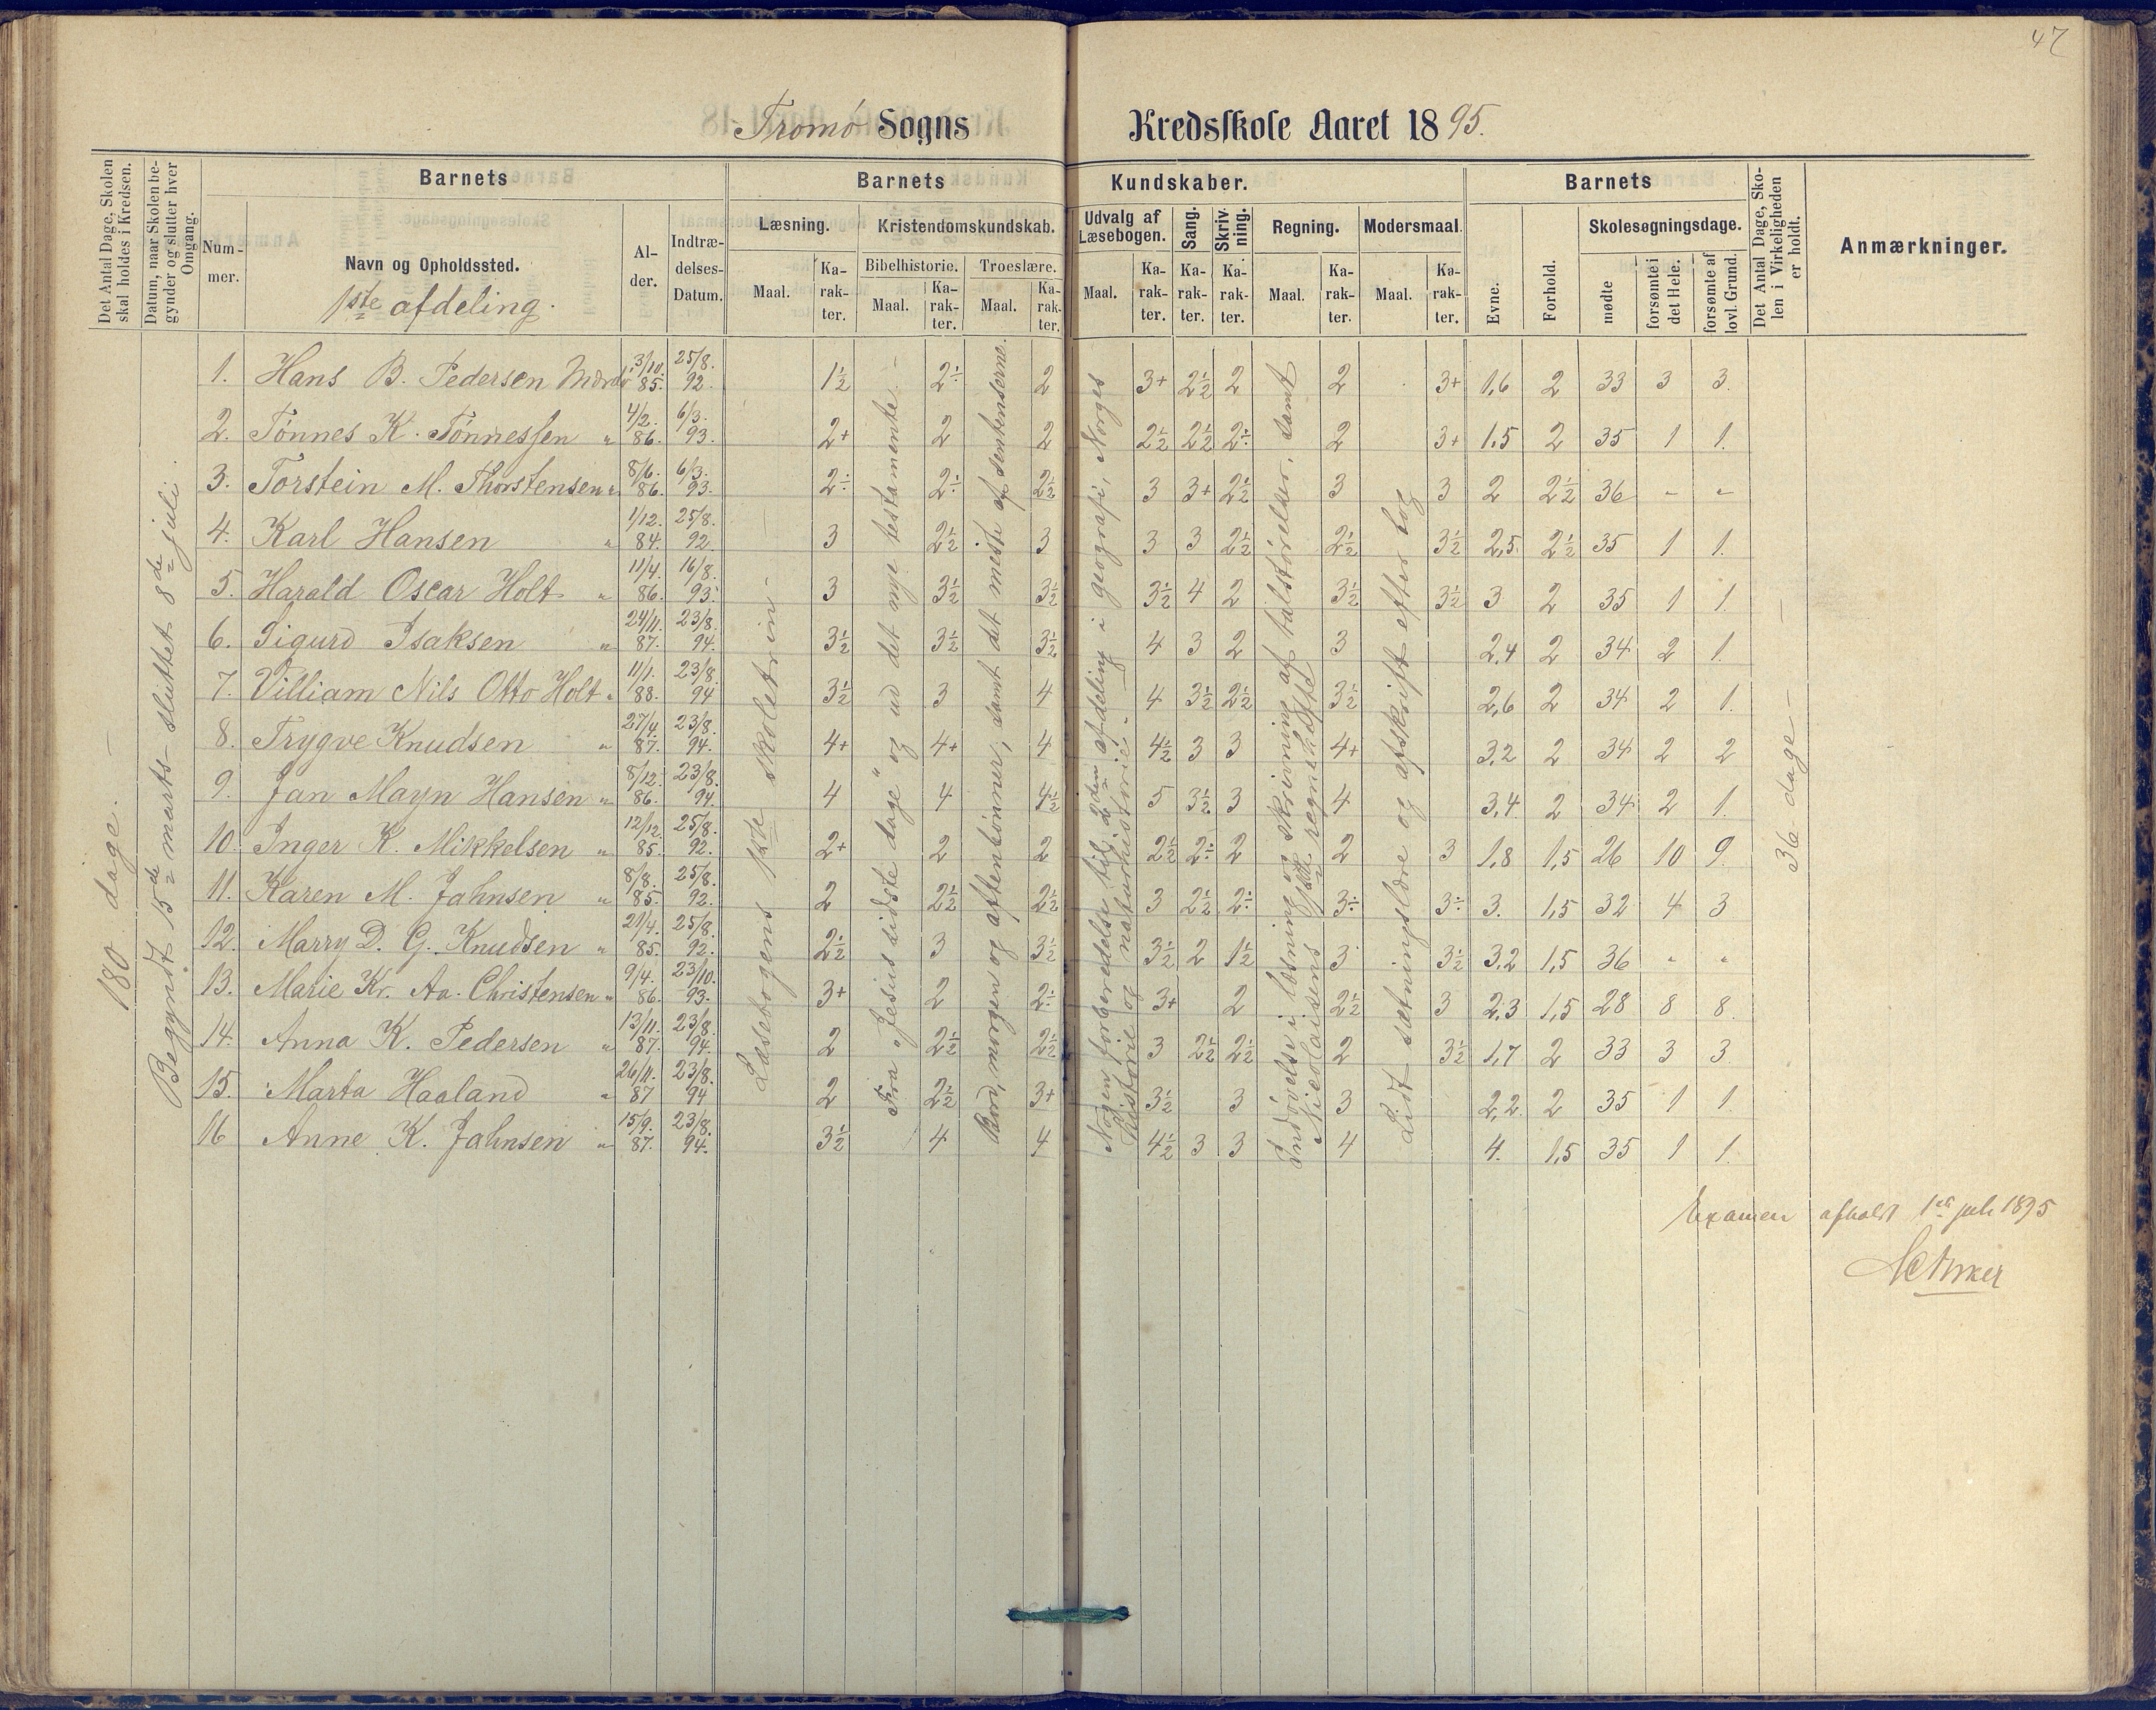 47
Tromø Sogns Kredsskole Aaret 1895.
Det Antal Dage, Skolen skal holdes i Kredsen.
Datum, naar Skolen begynder og slutter hver Omgang.
Barnets
Nummer.
Navn og Opholdssted.
1ste afdeling.
Alder.
Indtrædelses-Datum.
Barnets Kundskaber.
Læsning.
Maal.
Karakter.
Kristendomskundskab.
Bibelhistorie.
Maal.
Karakter.
Troeslære.
Maal.
Karakter.
Udvalg af Læsebogen.
Maal.
Karakter.
Sang.
Karakter.
Skrivning.
Karakter.
Regning.
Maal.
Karakter.
Modersmaal.
Maal.
Karakter.
Barnets
Evne.
Forhold.
Skolesøgningsdage.
mødte
forsømte i det Hele.
forsømte af lovl. Grund.
Det Antal Dage, Skolen i Virkeligheden er holdt.
Anmærkninger.
180 dage. –
Begyndt 15de marts sluttet 8de juli.
Læsebogens 1ste skoletrin –
Fra "Jesius sidste dage" og ud det nye testamente –
Bord, morgen og aftenbønner, samt det meste af sentenserne.
Nogen forberedelse til 2den afdeling i geografi, Norges historie og naturhistorie. –
Indøvelse i læsning og skrivning af talstørrelser, samt Nicolaisens 1ste regnehefte
Lidt sætningslære og afskrift efter bog
36 dage –
1. Hans B. Pedersen Mærdø 3/10. 85. 25/8. 92. 1½ 2÷ 2 3+ 2½ 2 2 3+ 1,6 2 33 3 3.
2. Tønnes K. Tønnessen " 4/2. 86. 6/3. 93. 2+ 2 2 2½ 2½ 2÷ 2 3+ 1,5 2 35 1 1.
3. Torstein M. Thorstensen " 8/6. 86. 6/3. 93. 2÷ 2÷ 2½ 3 3+ 2½ 3 3 2 2½ 36 " "
4. Karl Hansen " 1/12. 84. 25/8. 92. 3 2½ 3 3 3 2½ 2½ 3½ 2,5 2½ 35 1 1.
5. Harald Oscar Holt " 11/4. 86. 16/8. 93. 3 3½ 3½ 3½ 4 2 3½ 3½ 3 2 35 1 1.
6. Sigurd Isaksen " 24/11. 87. 23/8. 94. 3½ 3½ 3½ 4 3 2 3 2,4 2 34 2 1.
7. Villiam Nils Otto Holt " 11/1. 88. 23/8. 94 3½ 3 4 4 3½ 2½ 3½ 2,6 2 34 2 1.
8. Trygve Knudsen " 27/4. 87. 23/8. 94. 4+ 4+ 4 4½ 3 3 4+ 3,2 2 34 2 2
9. Jan Mayn Hansen " 8/12. 86. 23/8. 94. 4 4 4½ 5 3½ 3 4 3,4 2 34 2 1.
10. Inger K. Mikkelsen " 12/12. 85. 25/8. 92. 2+ 2 2 2½ 2÷ 2 2 3 1,8 1,5 26 10 9.
11. Karen M. Jahnsen " 8/8. 85. 25/8. 92. 2 2½ 2½ 3 2½ 2÷ 3÷ 3÷ 3. 1,5 32 4 3
12. Marry D. G. Knudsen " 21/4. 85. 25/8. 92. 2½ 3 3½ 3½ 2 1½ 3 3½ 3,2 1,5 36 " "
13. Marie Kr. Aa. Christensen " 9/4. 86. 23/10. 93. 3+ 2 2÷ 3+ 2 2½ 3 2,3 1,5 28 8 8.
14. Anna K. Pedersen " 13/11. 87. 23/8. 94. 2 2½ 2½ 3 2½ 2½ 2 3½ 1,7 2 33 3 3
15. Marta Haaland " 26/11. 87 23/8. 94 2 2½ 3+ 3½ 3 3 2,2. 2 35 1 1.
16 Anne K. Jahnsen " 15/9. 87. 23/8. 94. 3½ 4 4 4½ 3 3 4 4. 1,5 35 1 1.
Examen afholdt 1ste juli 1895